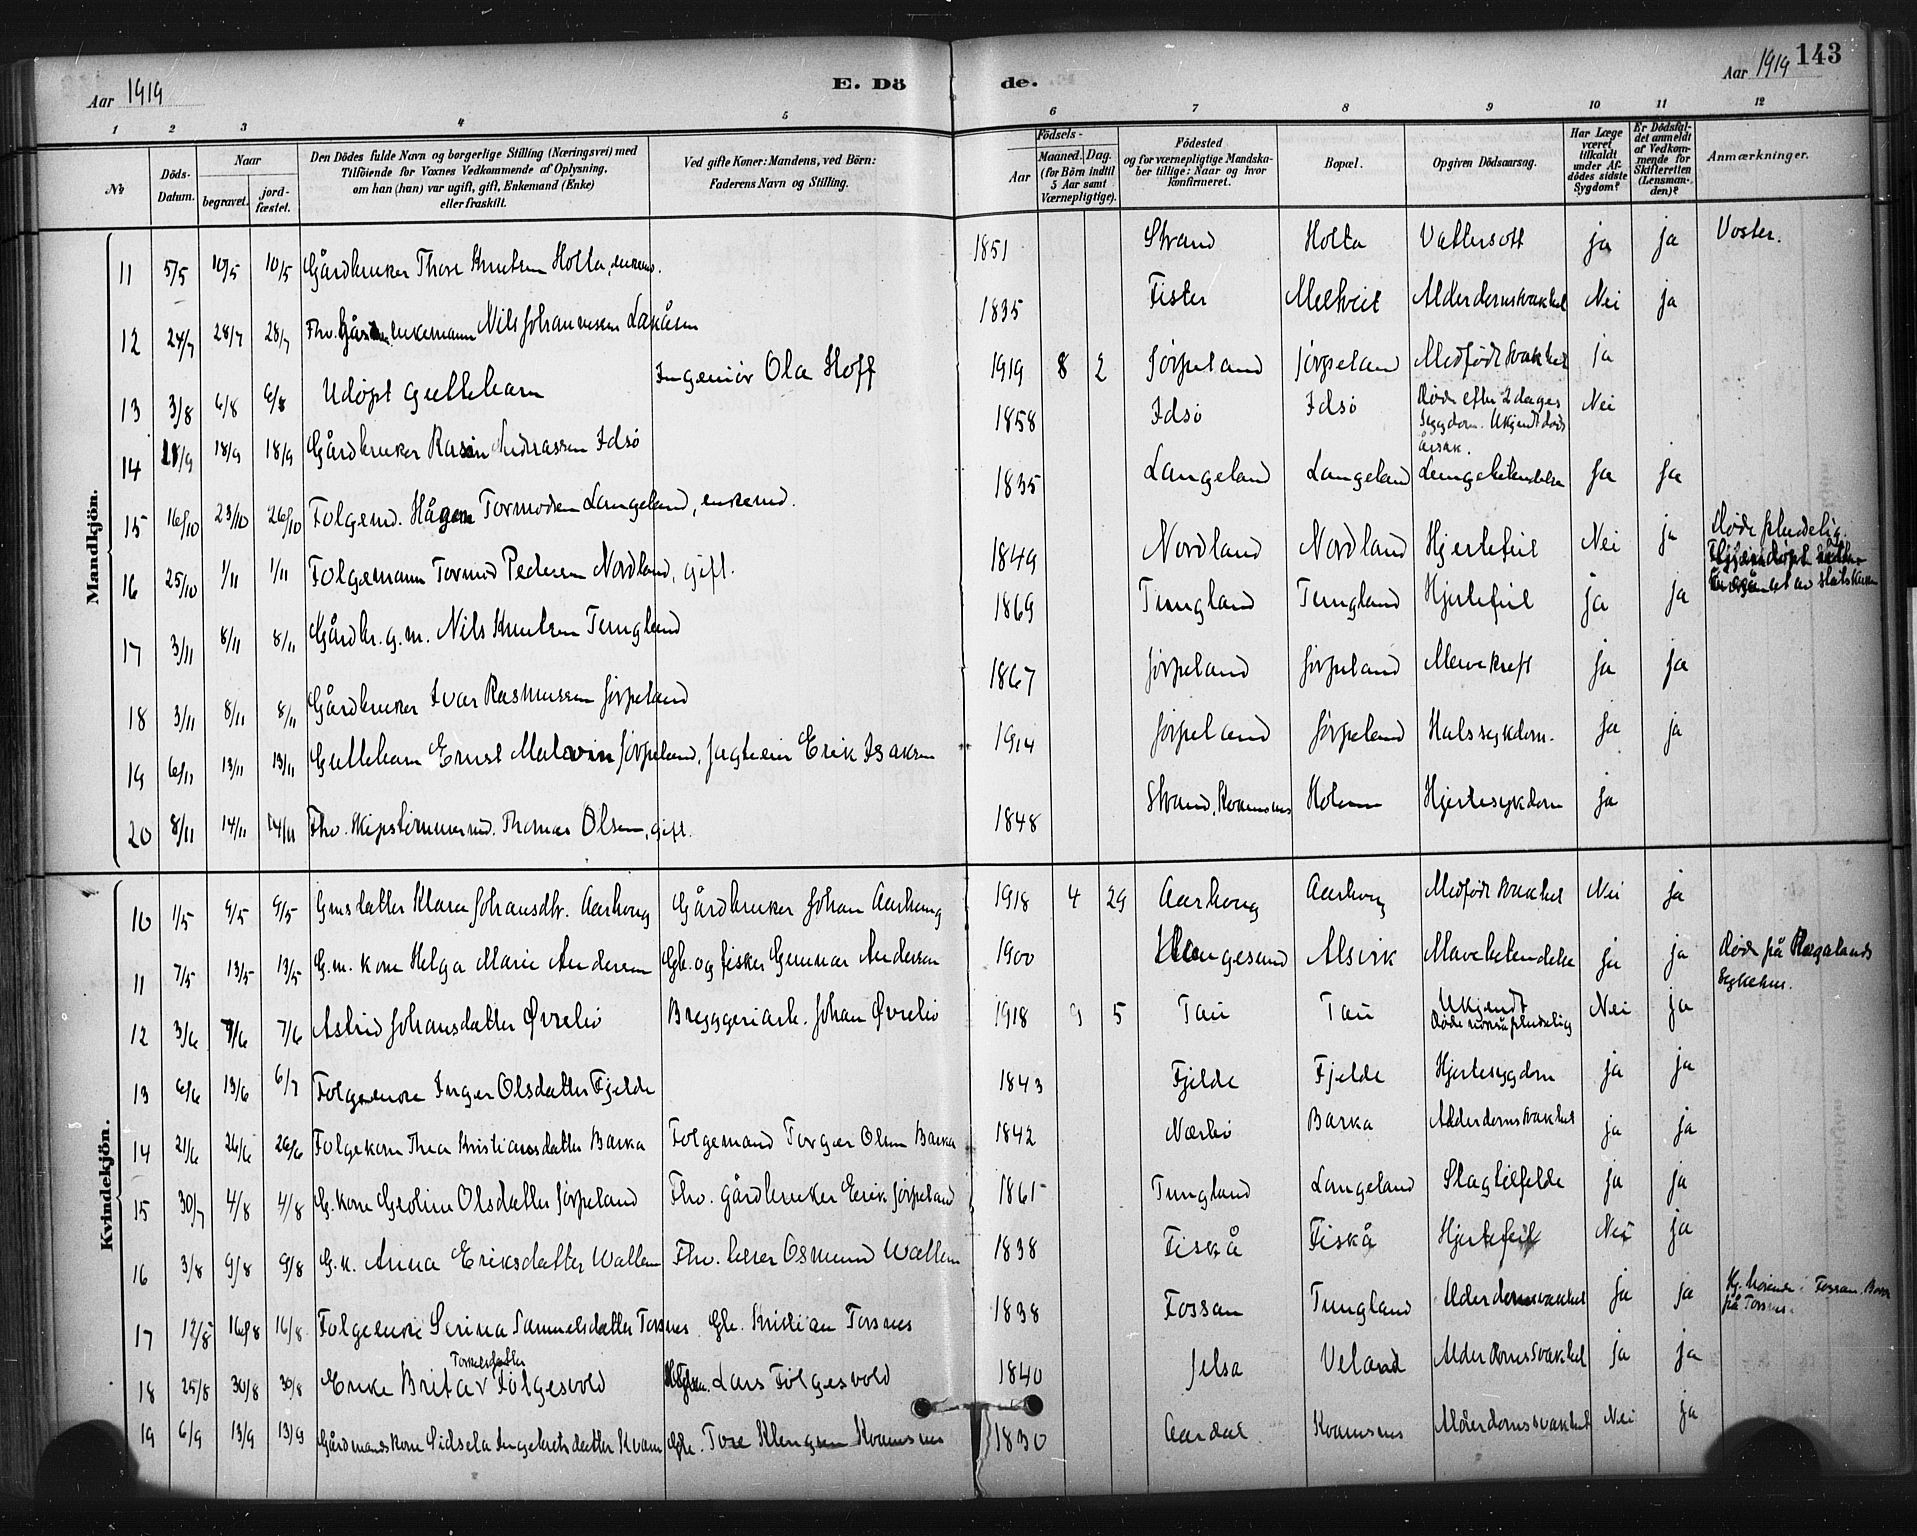 Aar 1919 E. Dö de. Aar 1919 143
1 2 3 4 5 6 7 8 9 10 11 12
No
Döds-Datum.
Naar
begravet.
jord-fæstet.
Den Dödes fulde Navn og borgerlige Stilling (Næringsvei) med
Tilföiende for Voxnes Vedkommende af Oplysning,
om han (hun) var ugift, gift, Enkemand (Enke)
eller fraskilt.
Ved gifte Koner: Mandens, ved Börn:
Faderens Navn og Stilling.
Födsels-
Aar
Maaned. Dag.
(for Börn indtil
5 Aar samt
Værnepligtige).
Födested
og for værnepligtige Mandska-
ber tillige: Naar og hvor
konfirmeret.
Bopæl.
Opgiven Dödsaarsag.
Har Læge
været
tilkaldt
under Af-
dödes sidste
Sygdom?
Er Dödsfal-
det anmeldt
af Vedkom-
mende for
Skifteretten
(Lensman-
den)?
Anmærkninger.
Mandkjön.
11 5/5 10/5 10/5 Gårdbruker Thore Knutsen Holta, enkem. 1851 Strand Holta Vattersott ja ja Voster.
12 24/7 28/7 28/7 Fhv. enkemann Nils Johannesen 1835 Fister Melkeit Alderdomssvakhet Nei ja
13 3/8 6/8 6/8 Udöpt guttebarn Ingeniör Ola Hoff 1919 8 2 Jörpeland Jörpeland Medfödt svakhet ja
14 18/9 18/9 Gårdbruker Andreassen Idsö 1858 Idsö Idsö Döde efter 2 dages
Sygdom. Ukjendt döds
årsak. Nei
15 16/10 23/10 26/10 Folgem. Håген Tormodsen Langeland, enkemd. 1835 Langeland Langeland Lungebetendelse ja ja
16 25/10 1/11 1/11 Folgemann Tormod Pedersen Nordland, gift. 1849 Nordland Nordland Hjertefeil Nei ja Döde pludselig
17 3/11 8/11 8/11 Gårdbr. g.m. Nils Knutsen Tungland 1869 Tungland Tungland Hjertefeil ja ja
18 3/11 8/11 8/11 Gårdbruker Ivar Rasmussen Jörpeland 1867 Jörpeland Jörpeland Mavekreft ja ja
19 6/11 13/11 13/11 Guttebarn Ernst Malvin Jörpeland, Jagteier Erik Isaksen 1914 Jörpeland Jörpeland Halssykdom. ja ja
20 8/11 14/11 14/11 Fhv. Skipstömmermd. Thomas Olsen, gift. 1848 Strand, Kvamsnes Holmen Hjertesykdom ja
Kvindekjön.
10 1/5 9/5 9/5 Gmsdatter Klara Johansdtr. Aarhoug Gårdbruker Johan Aarhoug 1918 4 29 Aarhoug Aarhoug Medfödt svakhet Nei ja
11 7/5 13/5 13/5 G.m. kone Helga Marie Andersen Gb. og fisker Gunnar Andersen 1900 Alsvik Mavebetendelse ja ja Döde på Rogalands
Sykehus.
12 3/6 7/6 7/6 Astrid Johansdatter Övrebö Bryggeriarb. Johan Övrebö 1918 9 5 Tau Tau Ukjendt
Döde pludselig Nei ja
13 6/6 13/6 6/7 Folgeenke Inger Olsdatter Fjelde 1843 Fjelde Fjelde Hjertesygdom ja ja
14 21/6 26/6 26/6 Folgekone Thea Kristiansdatter Barka Folgemand Torger Olsen Barka 1842 Nærbö Barka Alderdomssvakhet ja ja
15 30/7 4/8 4/8 G. kone Geoline Olsdatter Jörpeland Fhv. gårdbruker Erik Jörpeland 1865 Tungland Langeland Slagtilfelde ja ja
16 3/8 9/8 9/8 G.k. Anna Eriksdatter Wallem Fhv. lærer Osmund Wallem 1838 Fiskå Fiskå Hjertefeil Nei ja
17 12/8 16/8 16/8 Folgeenke Serina Samuelsdatter Torsnes Gb. Kristian Torsnes 1838 Fossan Tungland Alderdomssvakhet ja ja Hj. hörende i Fossan. Boer
på Torsnes.
Torkelsdatter
18 25/8 30/8 30/8 Enke Brita Fölgesvold Lars Fölgesvold 1840 Jelsa Veland Alderdomssvakhet ja ja
19 6/9 13/9 13/9 Gårdmandskone Sidsela Ingebretsdatter Kvam Gb. Tore Klengsen Kvamsnes 1830 Aardal Kvamsnes Alderdomssvakhet Nei ja